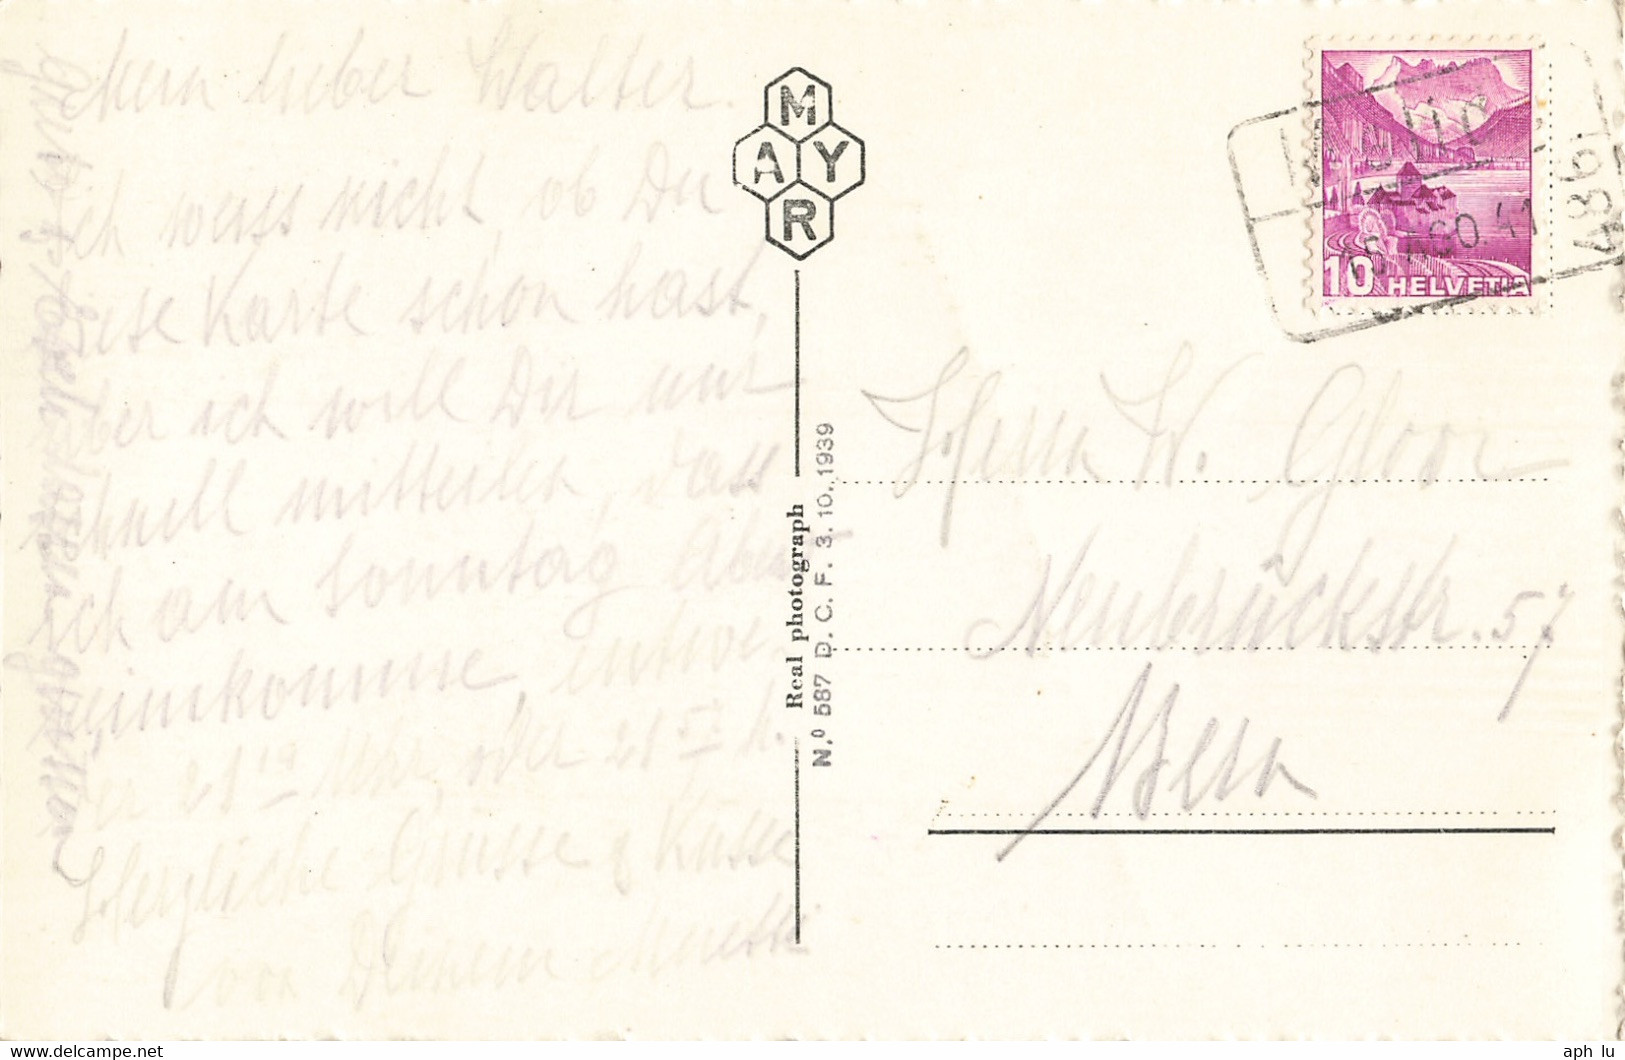 Mein lieber Walter.
Ich weiss nicht, ob Du
diese Karte schon hast,
aber ich will Dir nur
schnell mitteilen, dass
ich am Sonntag Abend
heimkomme, entwe-
der 21¹⁹ Uhr, oder 21⁵² h.
Herzliche Grüsse & Küsse
von Deinem Muetti
MAYR
Real photograph
N.º 587 D. C. F. 3. 10. 1939
10 HELVETIA
AGO. 41
4861
Herrn W. Gloor
Neubrückstr. 57
Bern
www.delcampe.net
aph lu